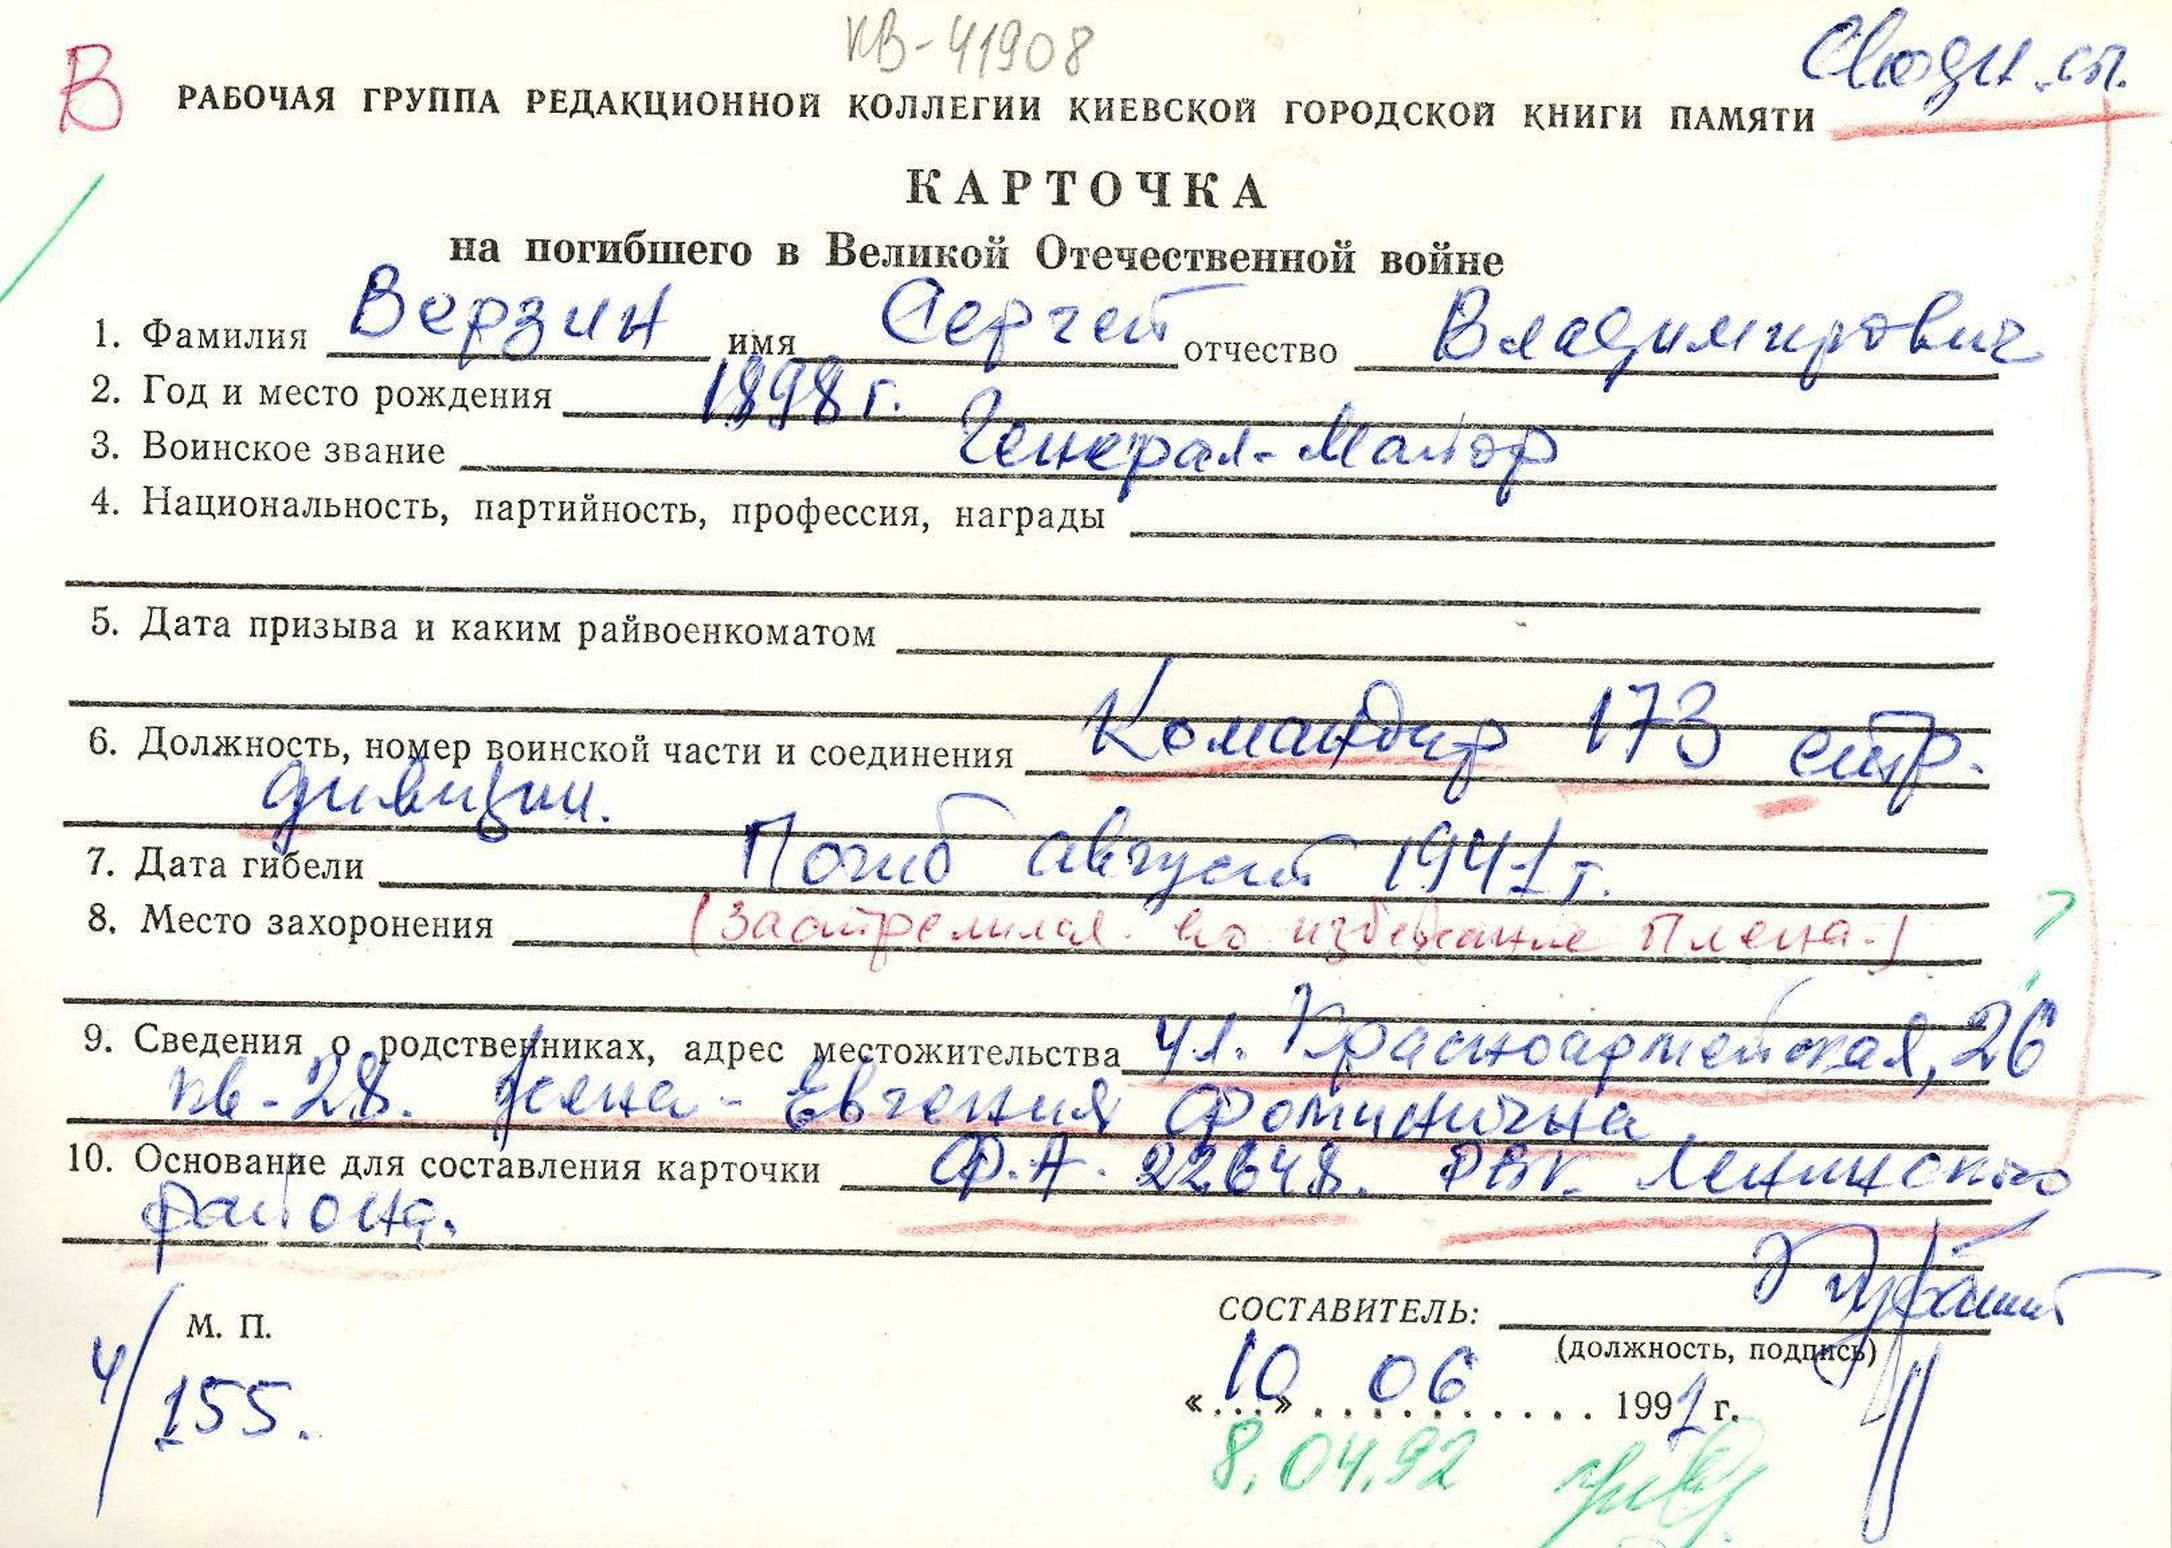 КВ-41908
Сводн. сп.
В
РАБОЧАЯ ГРУППА РЕДАКЦИОННОЙ КОЛЛЕГИИ КИЕВСКОЙ ГОРОДСКОЙ КНИГИ ПАМЯТИ
КАРТОЧКА
на погибшего в Великой Отечественной войне
1. Фамилия Верзин имя Сергей отчество Владимирович
2. Год и место рождения 1898 г.
3. Воинское звание Генерал-Майор
4. Национальность, партийность, профессия, награды
5. Дата призыва и каким райвоенкоматом
6. Должность, номер воинской части и соединения Командир 173 стр.
дивизии.
7. Дата гибели Погиб август 1941 г.
8. Место захоронения (Застрелился во избежание плена.) ?
9. Сведения о родственниках, адрес местожительства ул. Красноармейская, 26
кв-28. Жена - Евгения Фоминична.
10. Основание для составления карточки Ф.А. 22648. РВК. Ленинского
района.
М. П.
СОСТАВИТЕЛЬ:
(должность, подпись)
4/155.
«10» 06 1991 г.
8.04.92